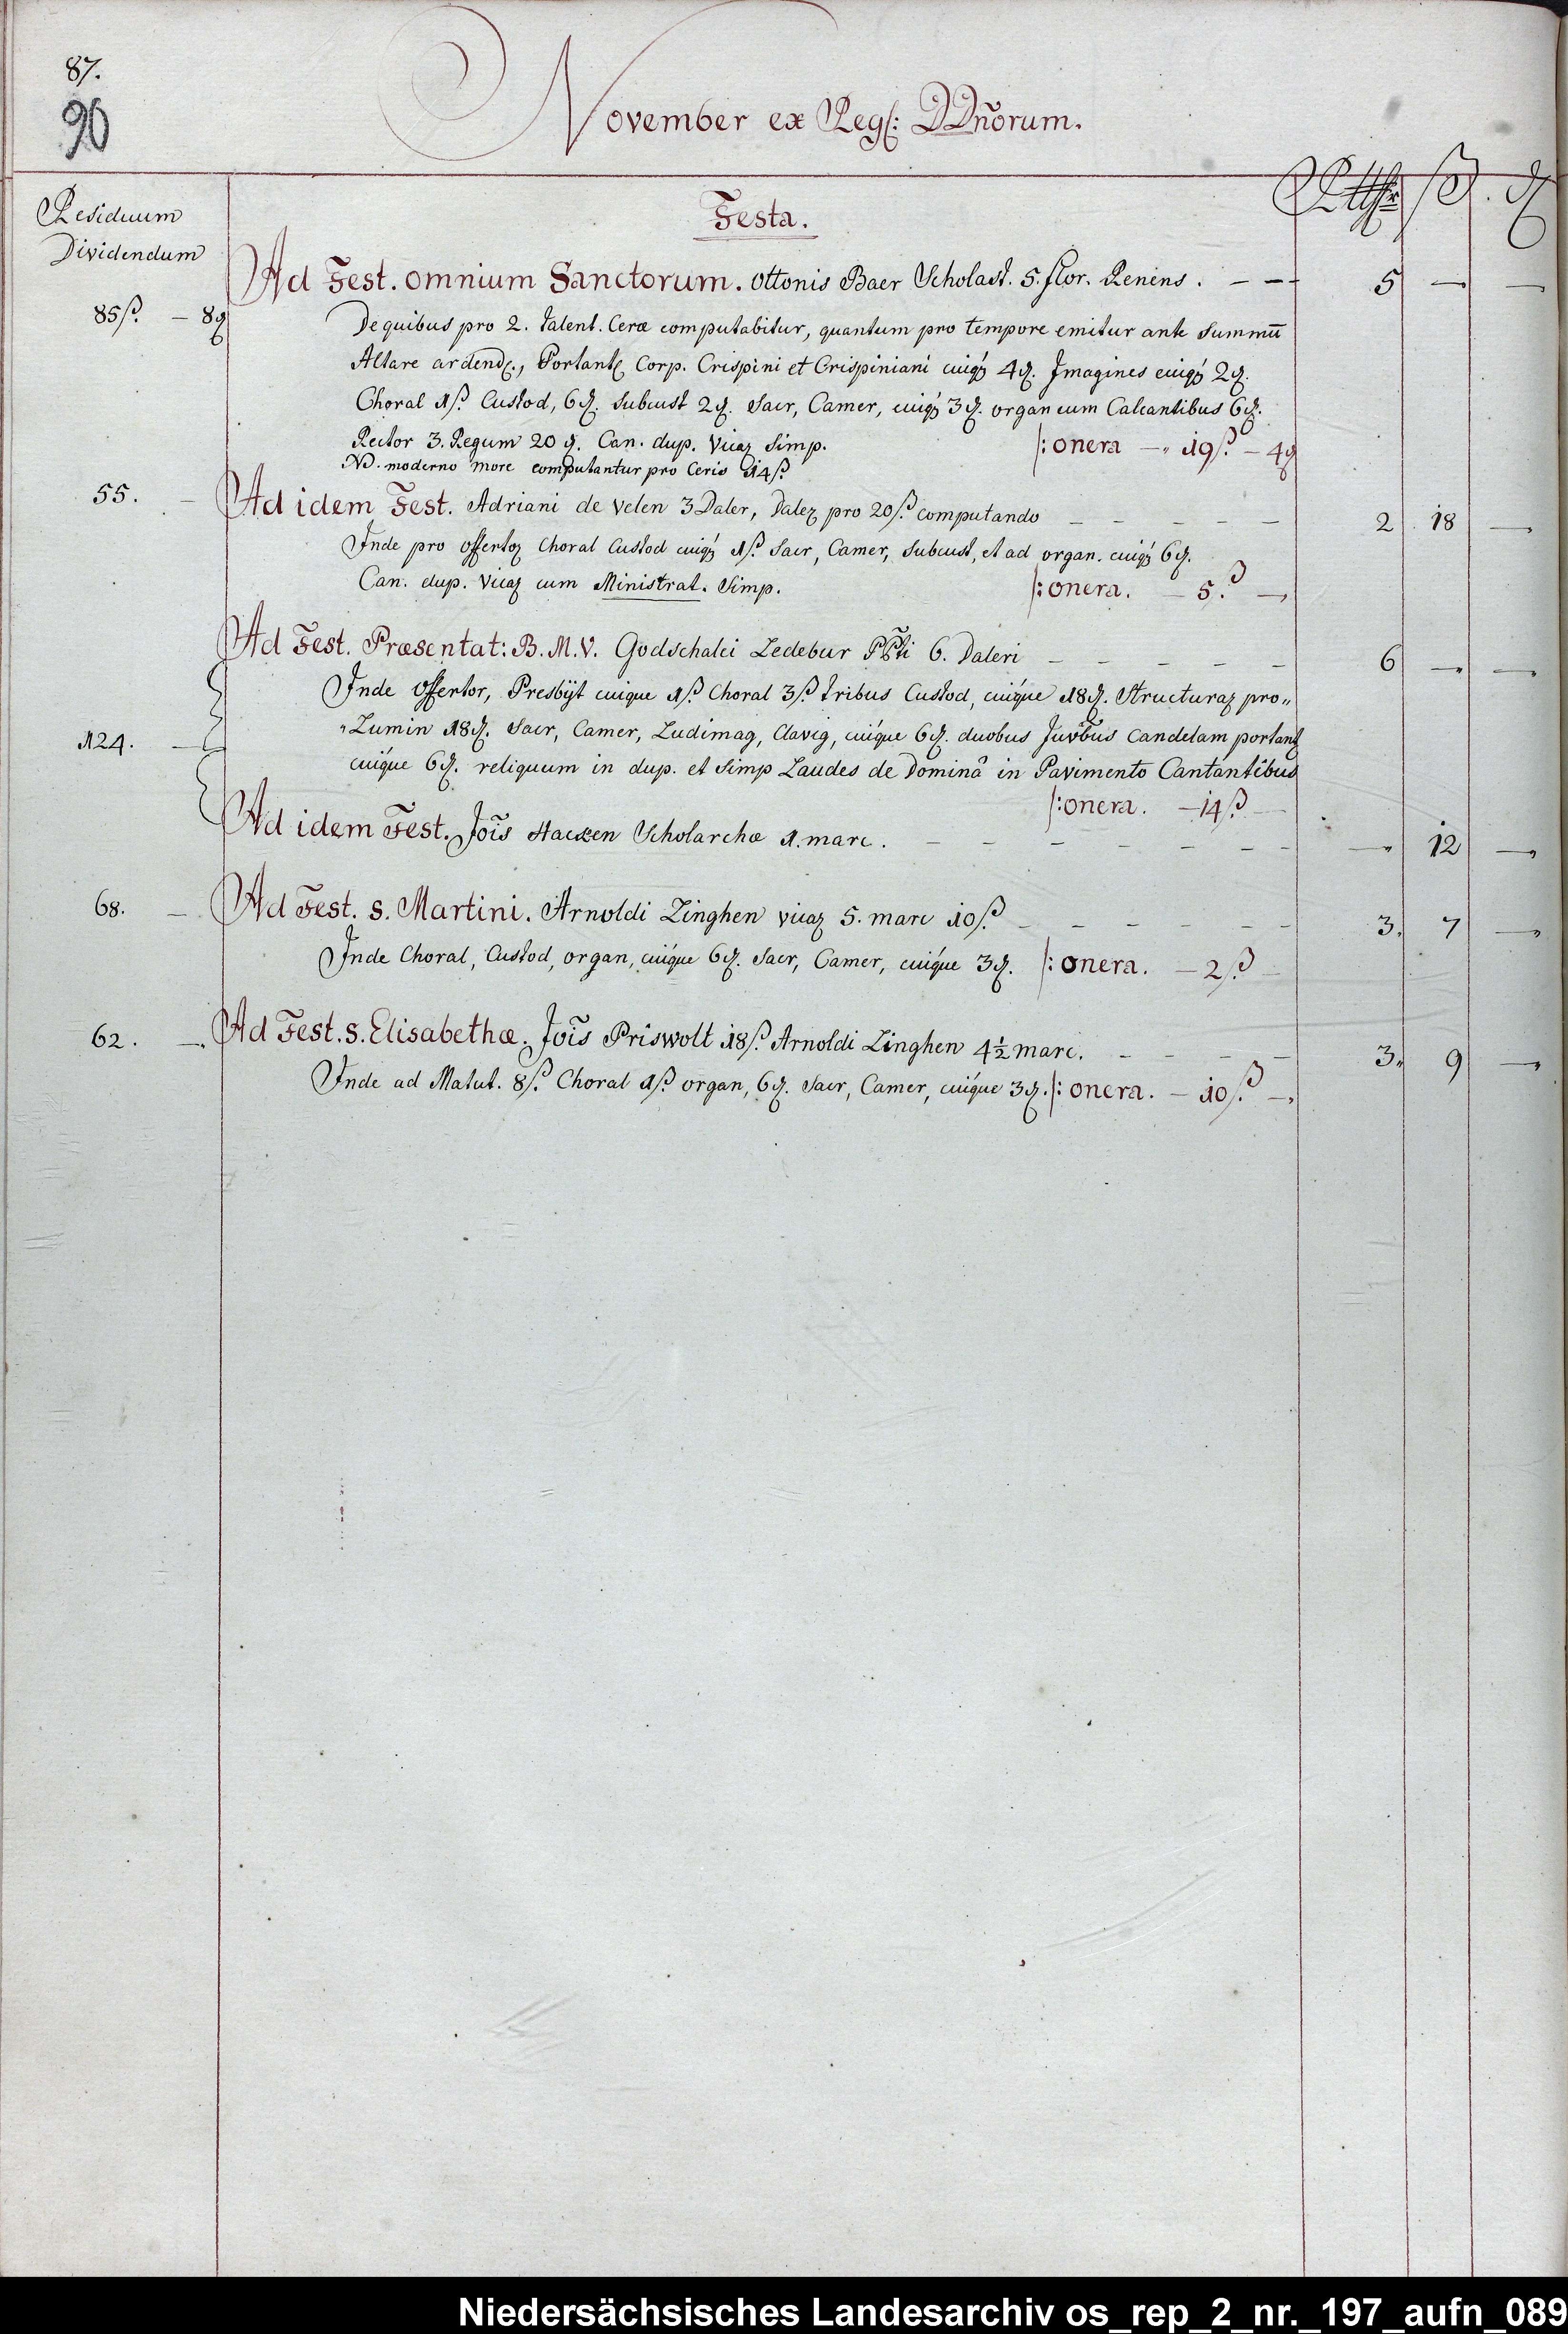 87.
90
November ex Regs: DDnõrum.
Residuum
Dividendum
Rtthlr ß. ₰
Festa.
Ad Fest. omnium Sanctorum. Ottonis Baer Scholast. 5. flor. Renens. - - - 5 — —
85ß. — 8₰
De quibus pro 2. talent. Ceræ computabitur, quantum pro tempore emitur ante Summū
Altare ardend., Portant. Corp. Crispini et Crispiniani cuiq₃ 4₰. Imagines cuiq₃ 2₰.
Choral 1ß. Custod, 6₰. Subcust 2₰. Sacr, Camer, cuiq₃ 3₰. organ cum Calcantibus 6₰.
Rector 3. Regum 20 ₰. Can. dup. Vicaꝝ Simp. /: onera — 19ß. — 4₰
NB. moderno more computantur pro Ceris 14ß
55. — Ad idem Fest. Adriani de Velen 3 Daler, Daleꝝ pro 20ß. computando - - - - - 2 18 —
Inde pro offertoꝝ Choral Custod cuiq₃ 1ß. Sacr, Camer, Subcust, et ad organ. cuiq₃ 6₰.
Can. dup. Vicaꝝ cum Ministrat. Simp. /: onera. — 5.ß —
Ad Fest. Præsentat: B. M. V. Godschalci Ledebur PPti 6. Daleri - - - - - 6 — —
Inde offertor, Presbÿt cuique 1ß. Choral 3ß. tribus Custod, cuique 18₰. Structuraꝝ pro„
124. — „Lumin 18₰. Sacr, Camer, Ludimag, Clavig, cuique 6₰. duobus Juvbus candelam portant
cuique 6₰. reliquum in dup. et Simp Laudes de Dominâ in Pavimento Cantantibus
/: onera. — 14ß —
Ad idem Fest. Jois Hacken Scholarchæ 1. marc. - - - - - - — 12 —
68. — Ad Fest. S. Martini. Arnoldi Linghen vicaꝝ 5. marc 10ß. - - - - - 3. 7 —
Inde Choral, Custod, organ, cuique 6₰. Sacr, Camer, cuique 3₰. /: onera. — 2ß —
62. — Ad Fest. S. Elisabethæ. Jois Priswolt 18ß. Arnoldi Linghen 4½ marc. - - - - 3. 9 —
Inde ad Matut. 8ß. Choral 1ß. organ, 6₰. Sacr, Camer, cuique 3₰. /: onera. — 10ß. —
Niedersächsisches Landesarchiv os_rep_2_nr._197_aufn_089